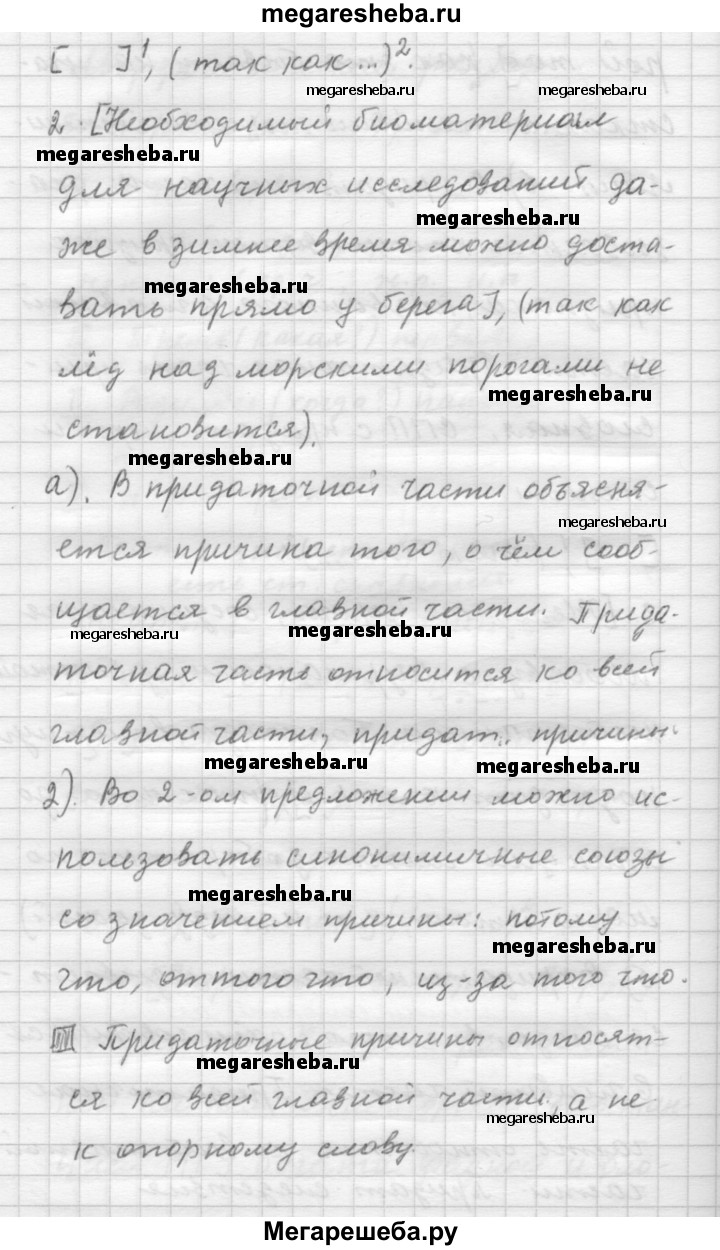 megaresheba.ru
[ ]¹, (так как...)².
megaresheba.ru megaresheba.ru
2. [Необходимый биоматериал
megaresheba.ru
для научных исследований да-
megaresheba.ru
же в зимнее время можно доста-
megaresheba.ru
вать прямо у берега], (так как
лёд над морскими порогами не
megaresheba.ru
становится).
megaresheba.ru
а). В придаточной части объясня-
megaresheba.ru
ется причина того, о чём сооб-
щается в главной части. Прида-
megaresheba.ru megaresheba.ru
точная часть относится ко всей
главной части, придат. причины.
megaresheba.ru megaresheba.ru
2). Во 2-ом предложении можно ис-
пользовать синонимичные союзы
megaresheba.ru
со значением причины: потому
megaresheba.ru
что, оттого что, из-за того что.
Придаточные причины относят-
megaresheba.ru
ся ко всей главной части, а не
megaresheba.ru
к опорному слову.
Мегарешеба.ру